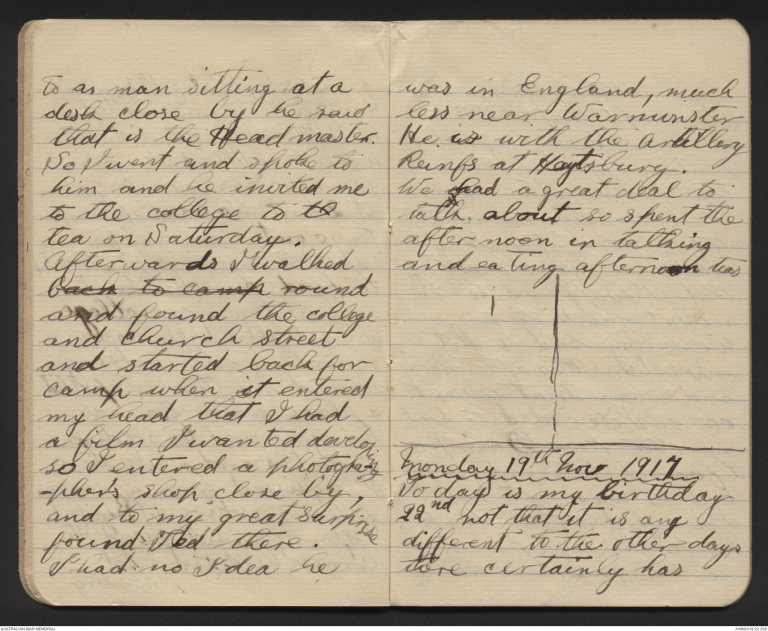 to as man sitting at a
desk close by he said
that is the Head master.
So I went and spoke to
him and he invited me
to the college to to
tea on Saturday.
Afterwards I walked
back to camp round
and found the college
and church street
and started back for
camp when it entered
my head that I had
a film I wanted developing
so I entered a photogra-
-pher's shop close by,
and to my great surprise
found Ted there.
I had no Idea he
was in England, much
less near Warminster
He is with the Artillery
Reinfs at Heytsbury.
We had a great deal to
talk about so spent the
after noon in talking
and eating afternoon teas
Monday 19th Nov 1917
Today is my birthday
22nd not that it is any
different to the other days
there certainly has
AUSTRALIAN WAR MEMORIAL